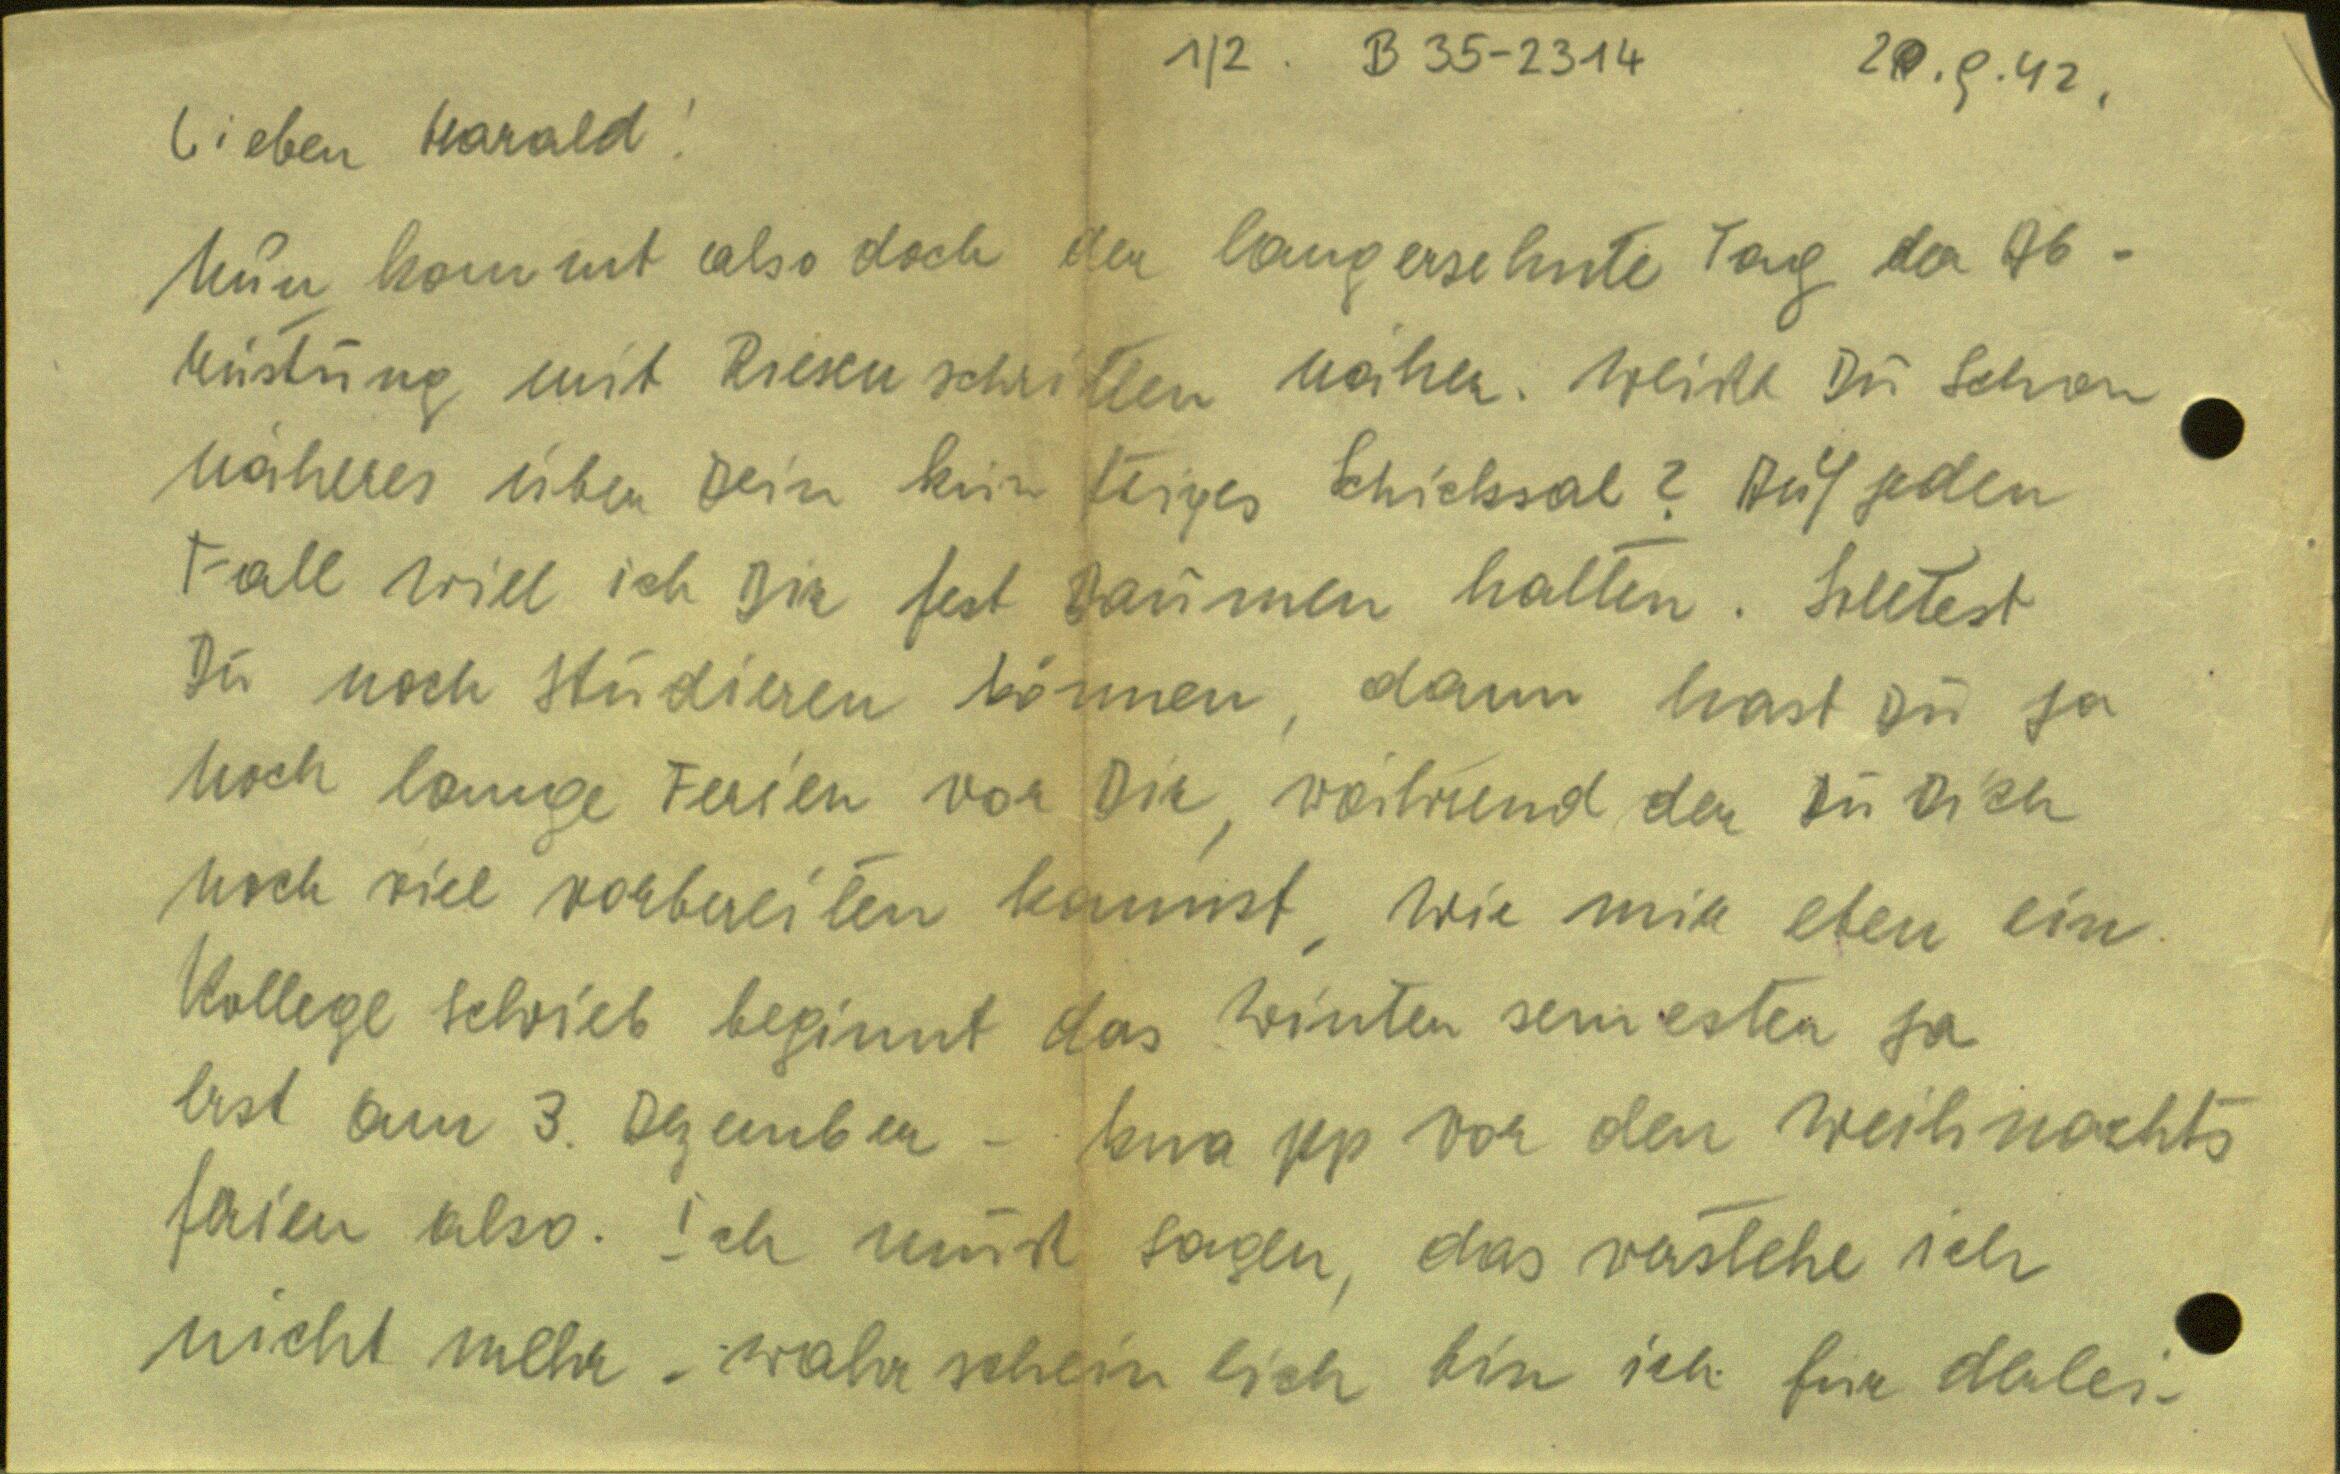 1/2. B 35-2314 20.9.42.
Lieber Harald!
Nun kommt also doch der langersehnte Tag der Ab-
rüstung mit Riesenschritten näher. Weißt Du schon
näheres über Dein künftiges Schicksal? Auf jeden
Fall will ich Dir fest Daumen halten. Solltest
Du noch studieren können, dann hast Du ja
noch lange Ferien vor Dir, während der Du Dich
noch viel vorbereiten kannst, wie mir eben ein
Kollege schrieb beginnt das Wintersemester ja
erst am 3. Dezember - knapp vor den Weihnachts
ferien also. Ich muß sagen, das verstehe ich
nicht mehr - wahrscheinlich bin ich für derlei-